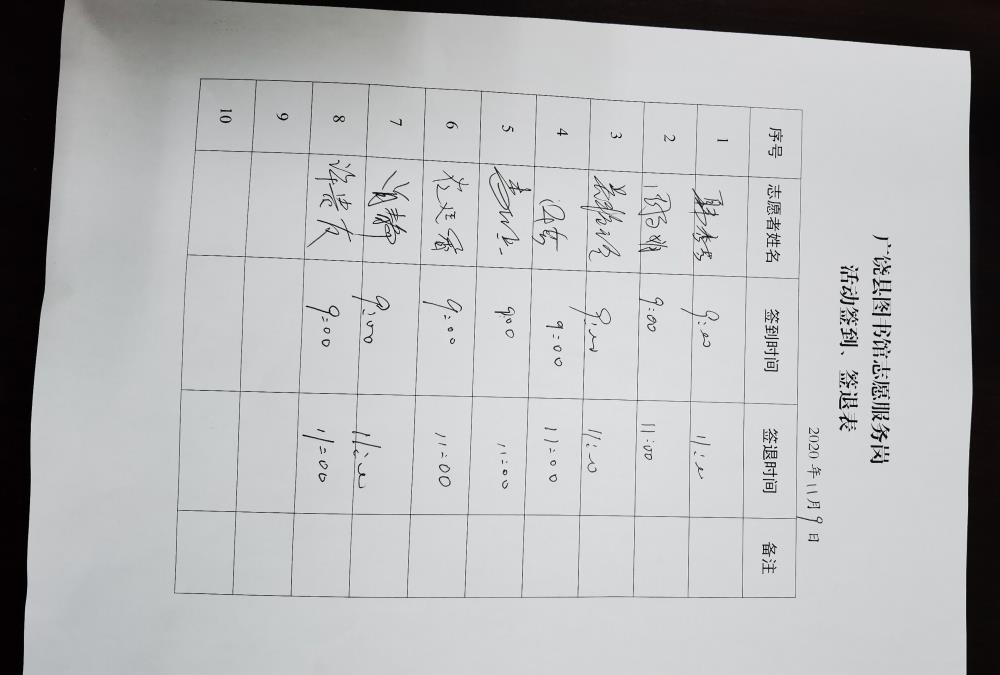 广饶县图书馆志愿服务岗
活动签到、签退表
2020年11月9日
序号 志愿者姓名 签到时间 签退时间 备注
1 9:00 11:00
2 9:00 11:00
3 9:00 11:00
4 9:00 11:00
5 9:00 11:00
6 9:00 11:00
7 肖静 9:00 11:00
8 9:00 11:00
9
10